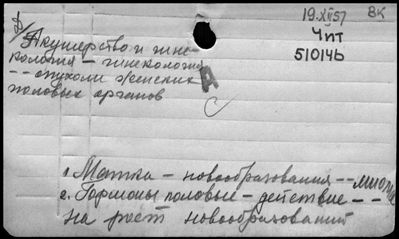 19.XII.57 ВК
Чит
510146
Акушерство и гине-
кология – гинекология
-- опухоли женских
половых органов
А
1. Матка – новообразования -- миома
2. Гормоны половые – действие --
на рост новообразований